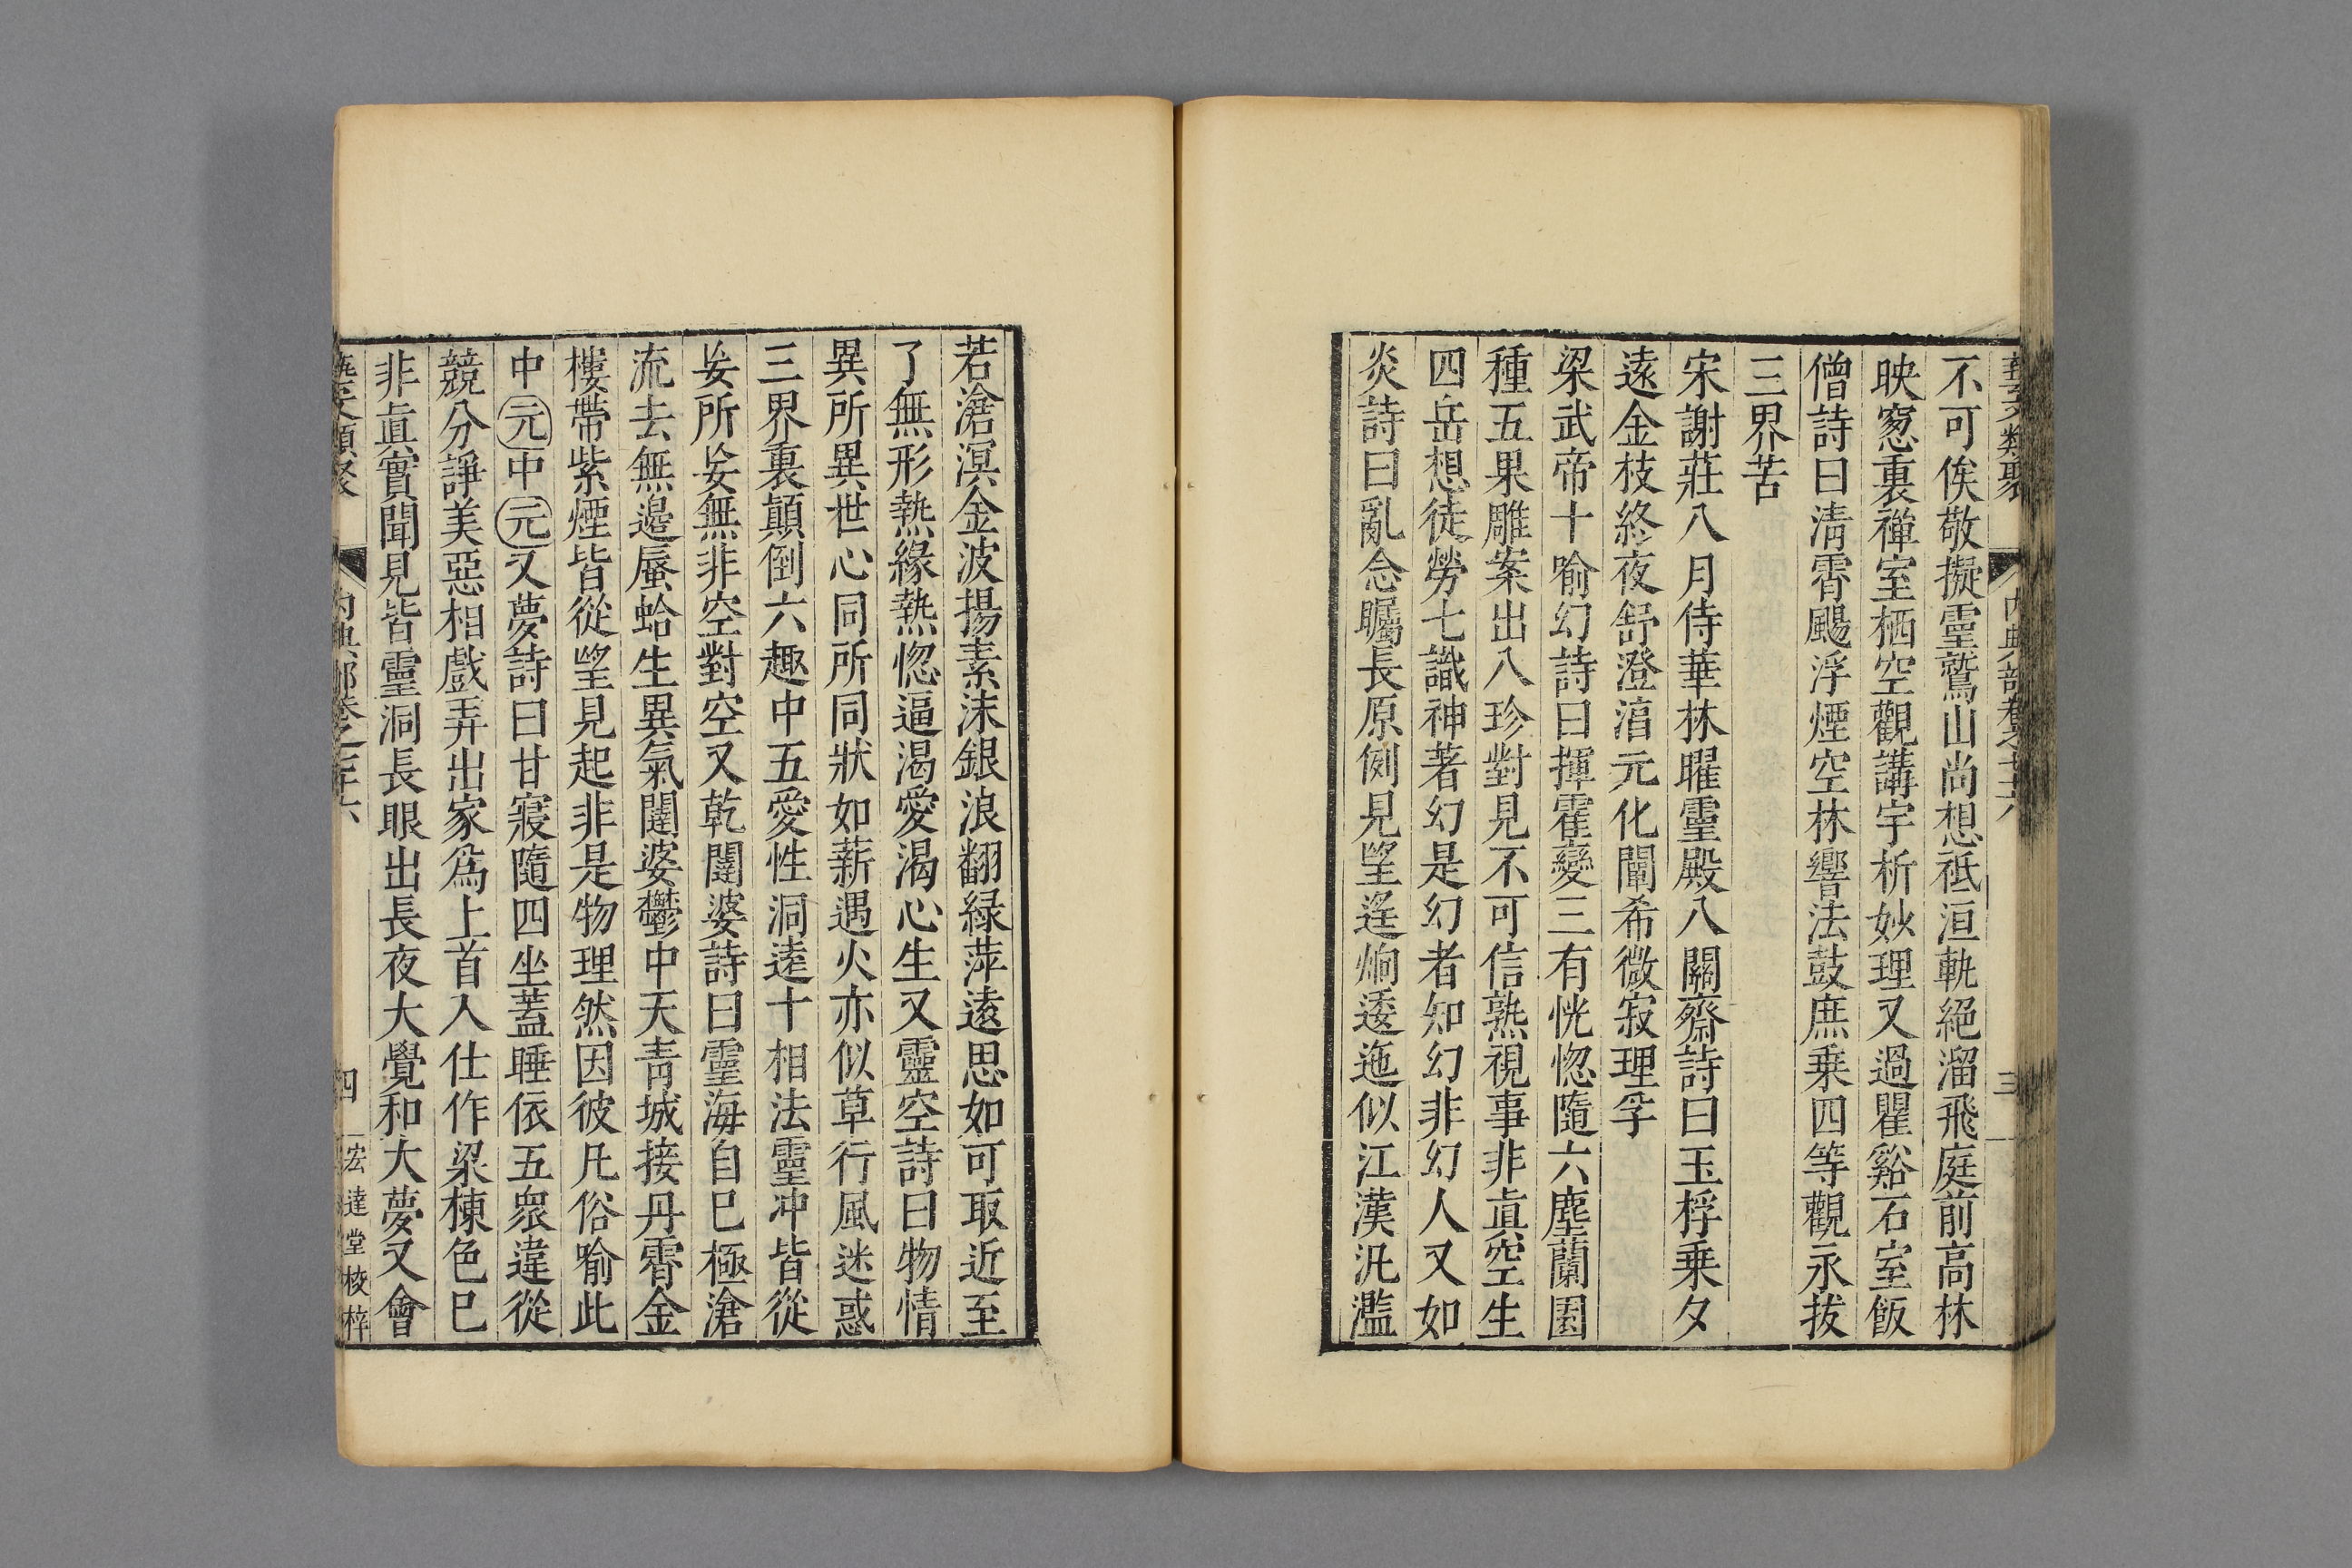 藝文類聚　內典部卷之七十六　三
不可俟敬擬靈鷲山尚想祗洹軌絕溜飛庭前高林
映窻裏禪室栖空觀講宇析妙理又過瞿谿石室飯
僧詩曰清霄颺浮煙空林響法鼓庶乗四等觀永拔
三界苦
宋謝莊八月侍華林曜靈殿八關齋詩曰玉桴乗夕
遠金枝終夜舒澄淯元化闡希微寂理孚
梁武帝十喻幻詩曰揮霍變三有恍惚隨六塵蘭園
種五果雕案出八珍對見不可信熟視事非眞空生
四岳想徒勞七識神著幻是幻者知幻非幻人又如
炎詩曰亂念矚長原例見望遥炯逶迤似江漢汎濫
若滄溟金波揚素沬銀浪翻緑萍遠思如可取近至
了無形熱緣熱惚逼渴愛渴心生又靈空詩曰物情
異所異世心同所同狀如薪遇火亦似草行風迷惑
三界裏顛倒六趣中五愛性洞遠十相法靈冲皆從
妄所妄無非空對空又乾闥婆詩曰靈海自已極滄
流去無邊蜃蛤生異氣闥婆鬱中天靑城接丹霄金
樓帶紫煙皆從望見起非是物理然因彼凡俗喻此
中元中元又夢詩曰甘寢隨四坐蓋睡依五衆違從
競分諍美惡相戲弄出家爲上首入仕作梁棟色已
非眞實聞見皆靈洞長眼出長夜大覺和大夢又會
藝文類聚　內典部卷之七十六　四　宏達堂校梓